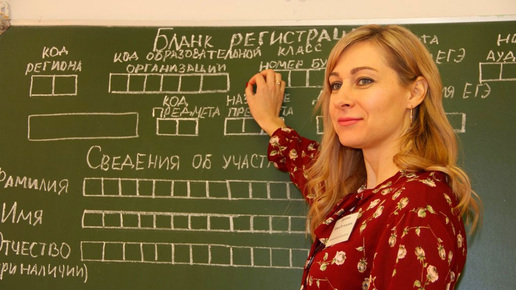 Бланк регистрац
код региона
код образовательной организации
класс
номер бу
ЕГЭ
ауд
код предмета
ЕГЭ
Сведения об участ
Фамилия
Имя
Отчество
при наличии)